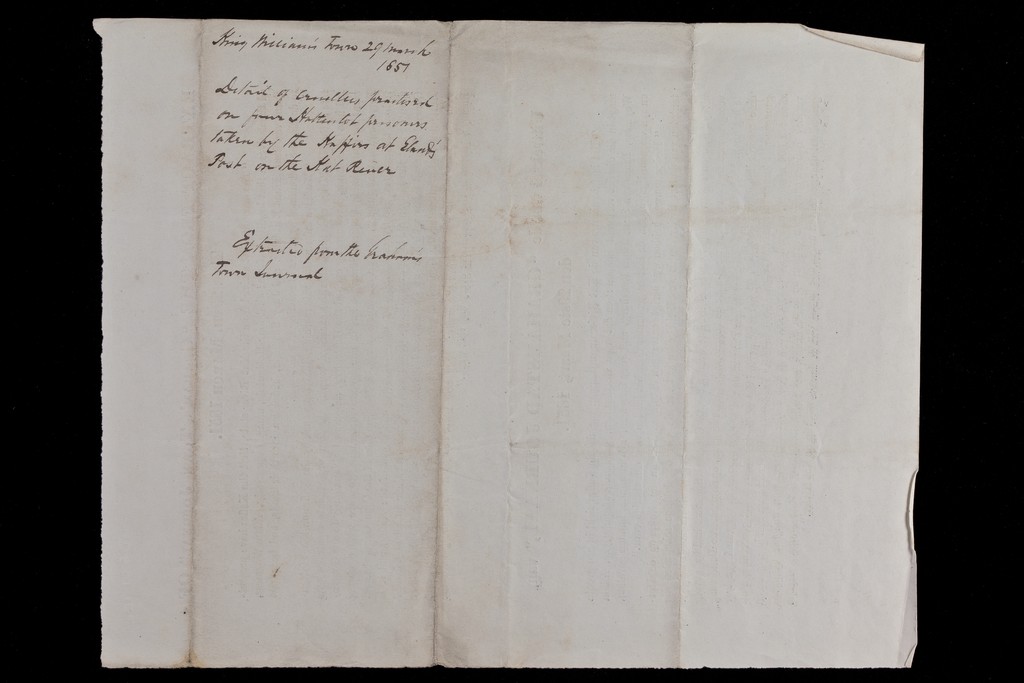 King William's Town 29 March
1851
Detail of Cruelties practised
on four Hottentot prisoners
taken by the Kaffirs at Eland's
Post on the Kat River
Extracted from the Graham's
Town Journal